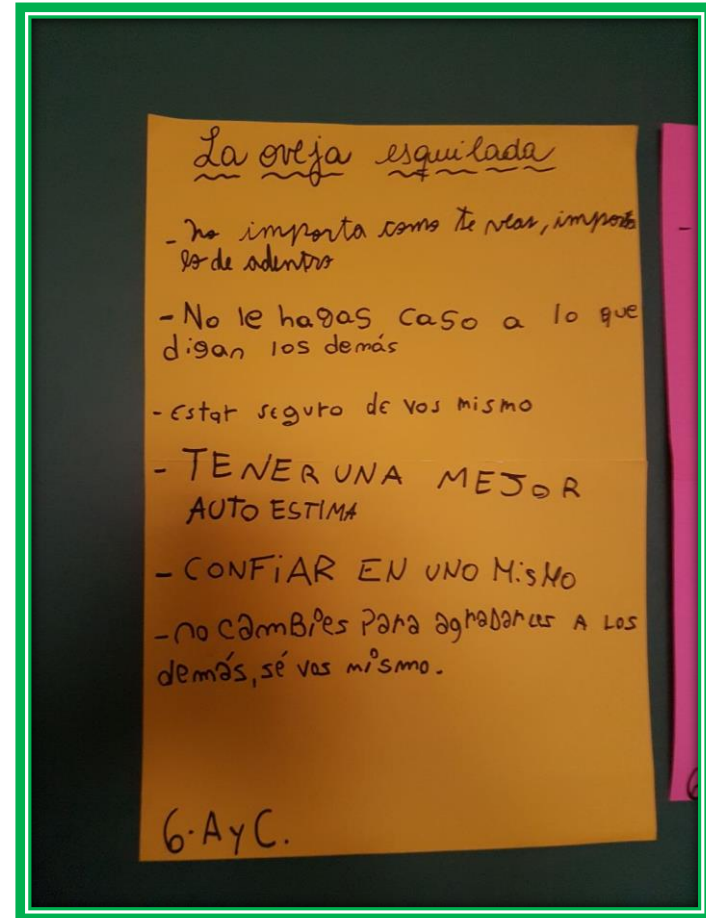 La oveja esquilada
- no importa como te veas, importa
lo de adentro
- No le hagas caso a lo que
digan los demás
- Estar seguro de vos mismo
- TENER UNA MEJOR
AUTO ESTIMA
- CONFiAR EN UNO MisMO
- no camBies Para agradarles A LOS
demás, sé vos mismo.
6. A y C.